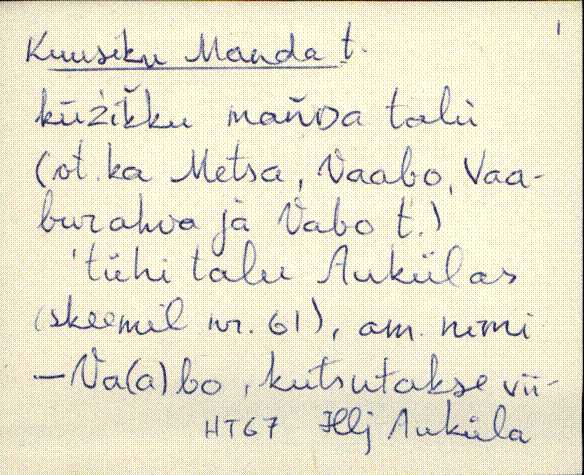 1
Kuusiku Manda t.
kūžikku mańDa talu
(vt. ka Metsa, Vaabo, Vaa-
burahva ja Vabo t.)
'tühi talu Aukülas
(skeemil nr. 61), am. nimi
– Va(a)bo, kutsutakse vii-
HT67 Hlj Auküla